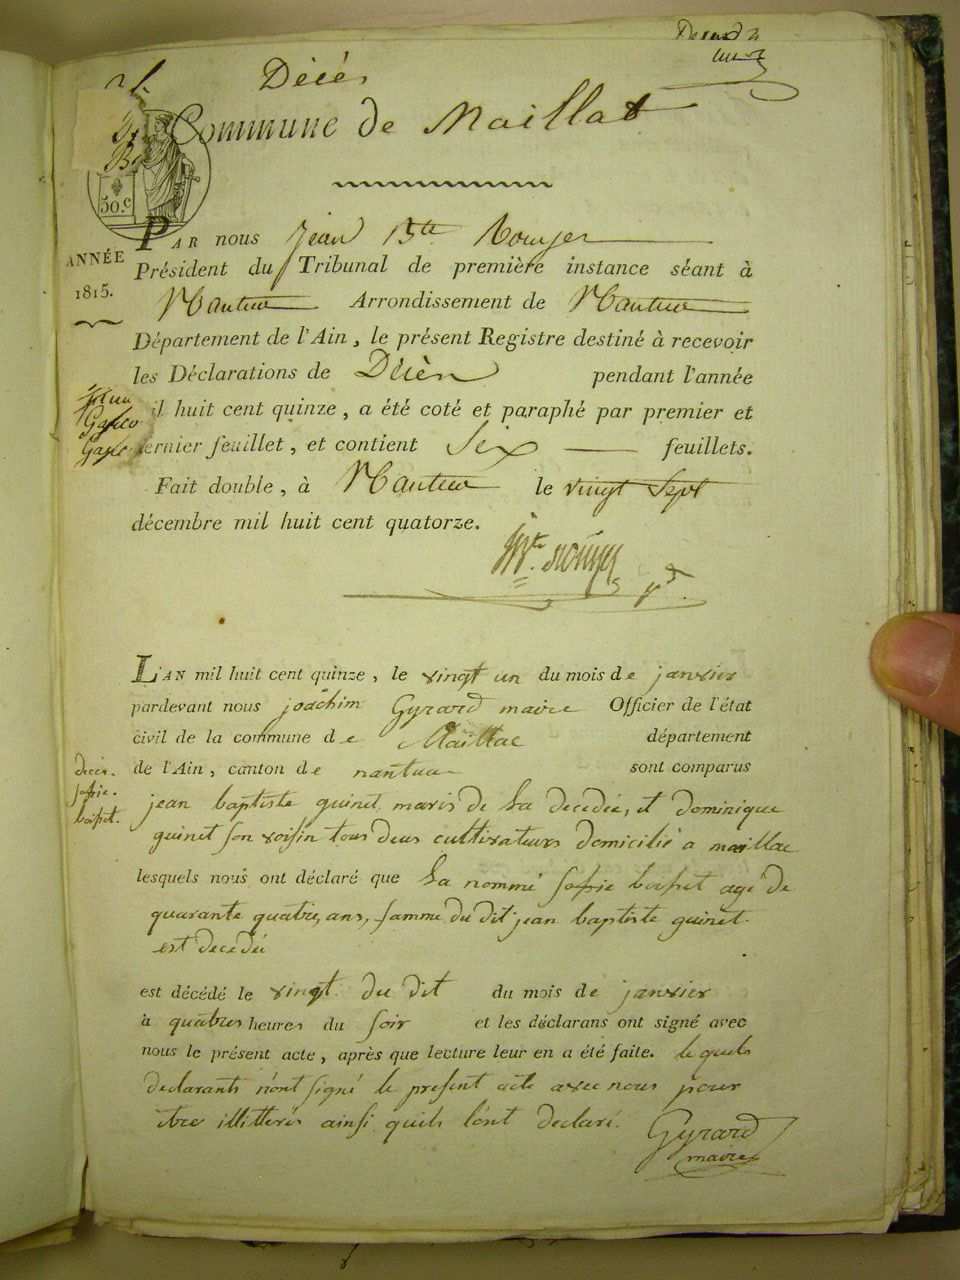 Décès
Commune de Maillat
50.c
PAR nous Jean Bte Rouyer
ANNÉE
1815.
Président du Tribunal de première instance séant à
Nantua Arrondissement de Nantua
Département de l'Ain, le présent Registre destiné à recevoir
les Déclarations de Décès pendant l'année
il huit cent quinze, a été coté et paraphé par premier et
ernier feuillet, et contient Six feuillets.
Fait double, à Nantua le vingt Sept
décembre mil huit cent quatorze.
Bte Rouyer
L'AN mil huit cent quinze, le vingt un du mois de janvier
pardevant nous joachim Gyrard maire Officier de l'état
civil de la commune de Maillac département
de l'Ain, canton de nantua sont comparus
deces.
sofie.
boisset.
jean baptiste quinet maris de la decedée, et dominique
quinet son voisin tous deus cultivateurs domicilié a maillac
lesquels nous ont déclaré que la nommé sofie boisset agé de
quarante quatre, ans, famme du dit jean baptiste quinet
est decedéé
est décédé le vingt du dit du mois de janvier
à quatres heures du soir et les déclarans ont signé avec
nous le présent acte, après que lecture leur en a été faite. lequels
declarants n'ont signé le present acte avec nous pour
être illitterés ainsi quils l'ont declaré.
Gyrard
maire